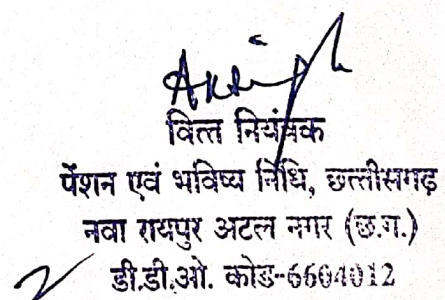 वित्त नियंत्रक
पेंशन एवं भविष्य निधि, छत्तीसगढ़
नवा रायपुर अटल नगर (छ.ग.)
डी.डी.ओ. कोड-6604012